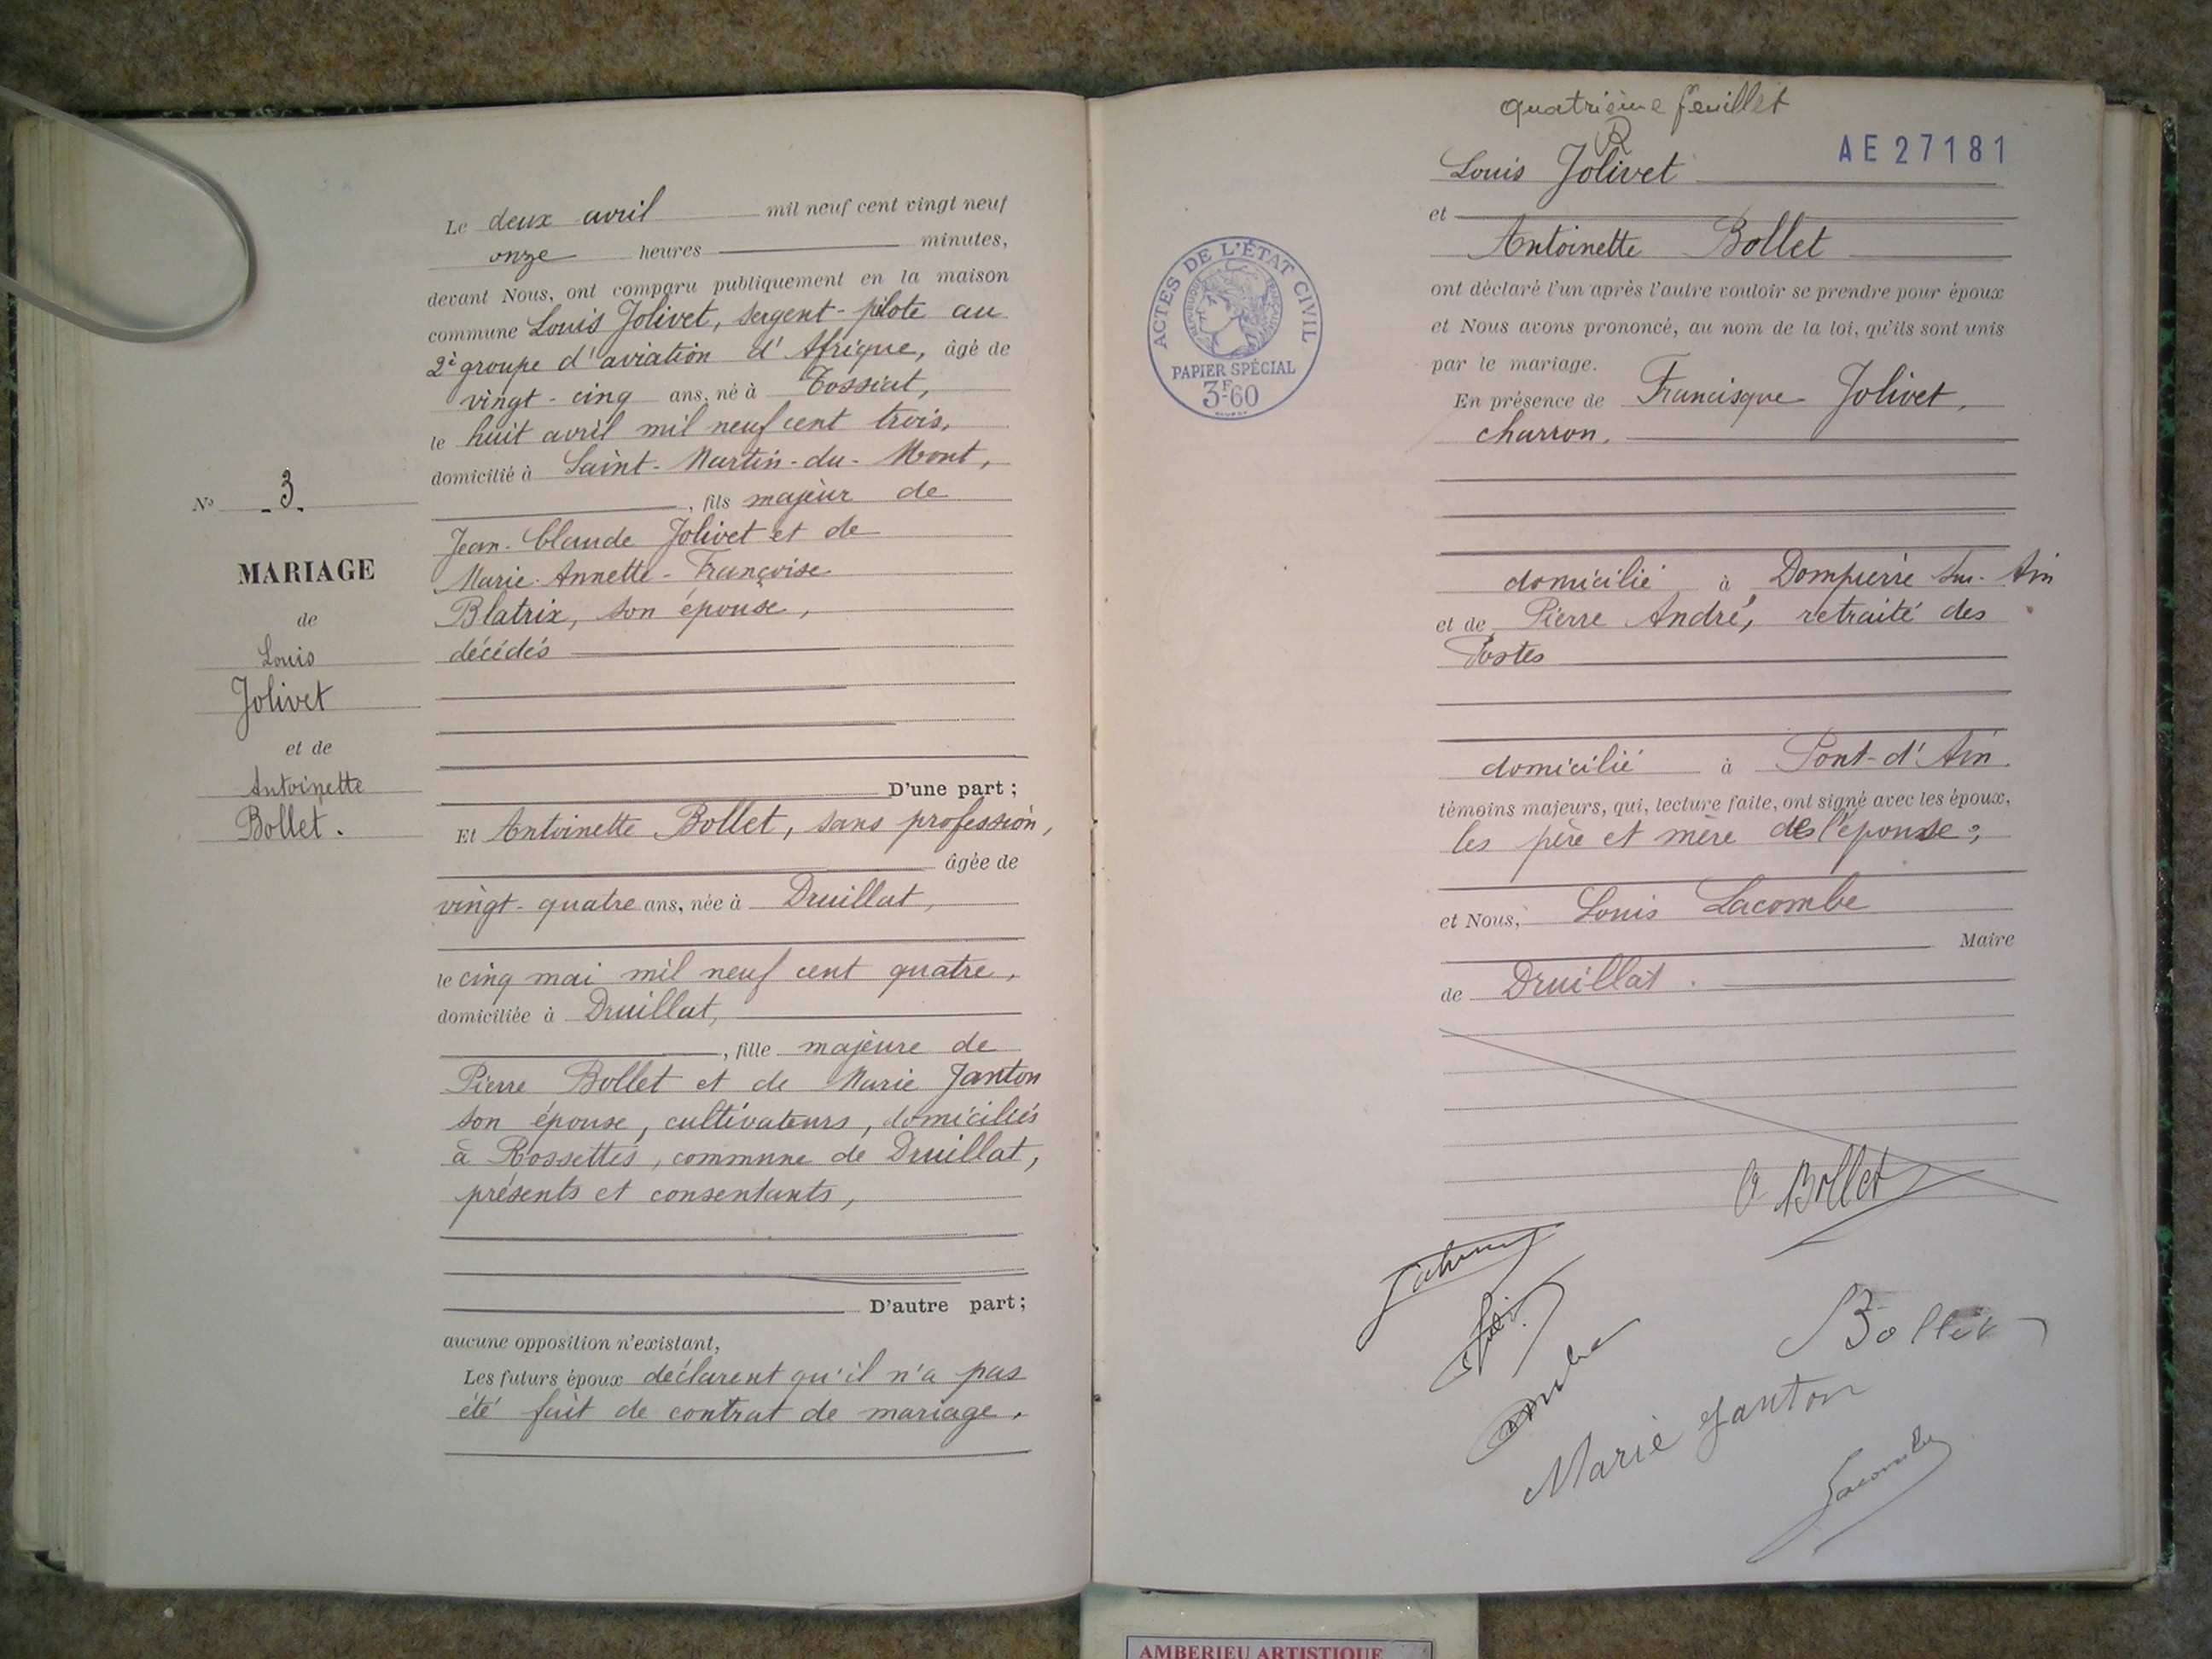 Le deux avril mil neuf cent vingt neuf
onze heures minutes,
devant Nous, ont comparu publiquement en la maison
commune Louis Jolivet, sergent-pilote au
2è groupe d'aviation d'Afrique, âgé de
vingt-cinq ans, né à Tossiat,
le huit avril mil neuf cent trois,
domicilié à Saint-Martin-du-Mont,
, fils majeur de
Jean-Claude Jolivet et de
Marie-Annette-Françoise
Blatrix, son épouse,
décédés
D'une part;
Et Antoinette Bollet, sans profession,
âgée de
vingt-quatre ans, née à Druillat,
le cinq mai mil neuf cent quatre,
domiciliée à Druillat,
, fille majeure de
Pierre Bollet et de Marie Janton
son épouse, cultivateurs, domiciliés
à Rossettes, commune de Druillat,
présents et consentants,
D'autre part;
aucune opposition n'existant,
Les futurs époux déclarent qu'il n'a pas
été fait de contrat de mariage.
No 3.
MARIAGE
de
Louis
Jolivet
et de
Antoinette
Bollet.
quatrième feuillet
AE27181
Louis Jolivet
et
Antoinette Bollet
ont déclaré l'un après l'autre vouloir se prendre pour époux
et Nous avons prononcé, au nom de la loi, qu'ils sont unis
par le mariage.
En présence de Francisque Jolivet,
charron,
domicilié à Dompierre sur-Ain
et de Pierre André, retraité des
Postes
domicilié à Pont-d'Ain.
témoins majeurs, qui, lecture faite, ont signé avec les époux,
les père et mère de l'épouse;
et Nous, Louis Lacombe
Maire
de Druillat.
ACTES DE L'ÉTAT CIVIL
RÉPUBLIQUE FRANÇAISE
PAPIER SPÉCIAL
3F60
A Bollet
Bollet
Marie Janton
Lacombe
AMBERIEU ARTISTIQUE